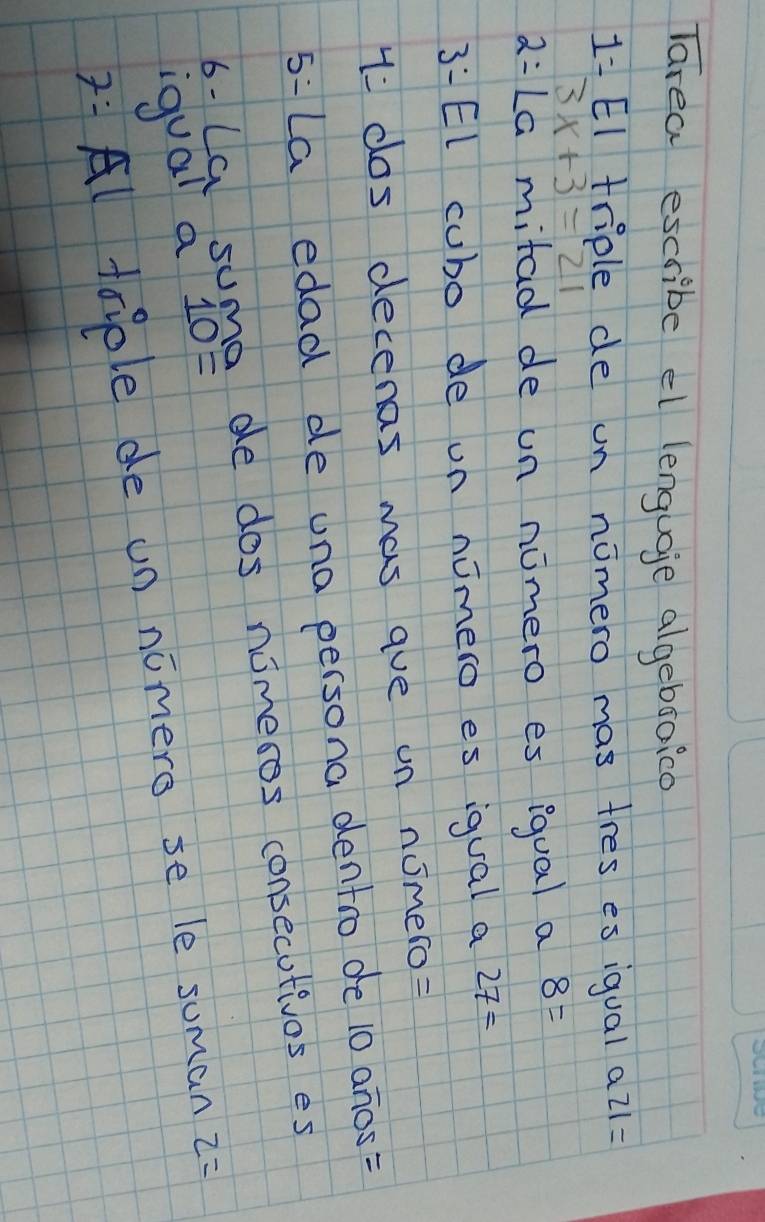 Tarea escribe el lenguaje algebraico
1-. El triple de un número mas tres es igual a 21=
3x+3=21
2-. La mitad de un número es igual a 8=
3-. El cubo de un número es igual a 27=
4-. dos decenas mas que un número=
5-. La edad de una persona dentro de 10 años=
6-. La suma de dos números consecutivos es
igual a 10=
7-. Al triple de un número se le suman 2=